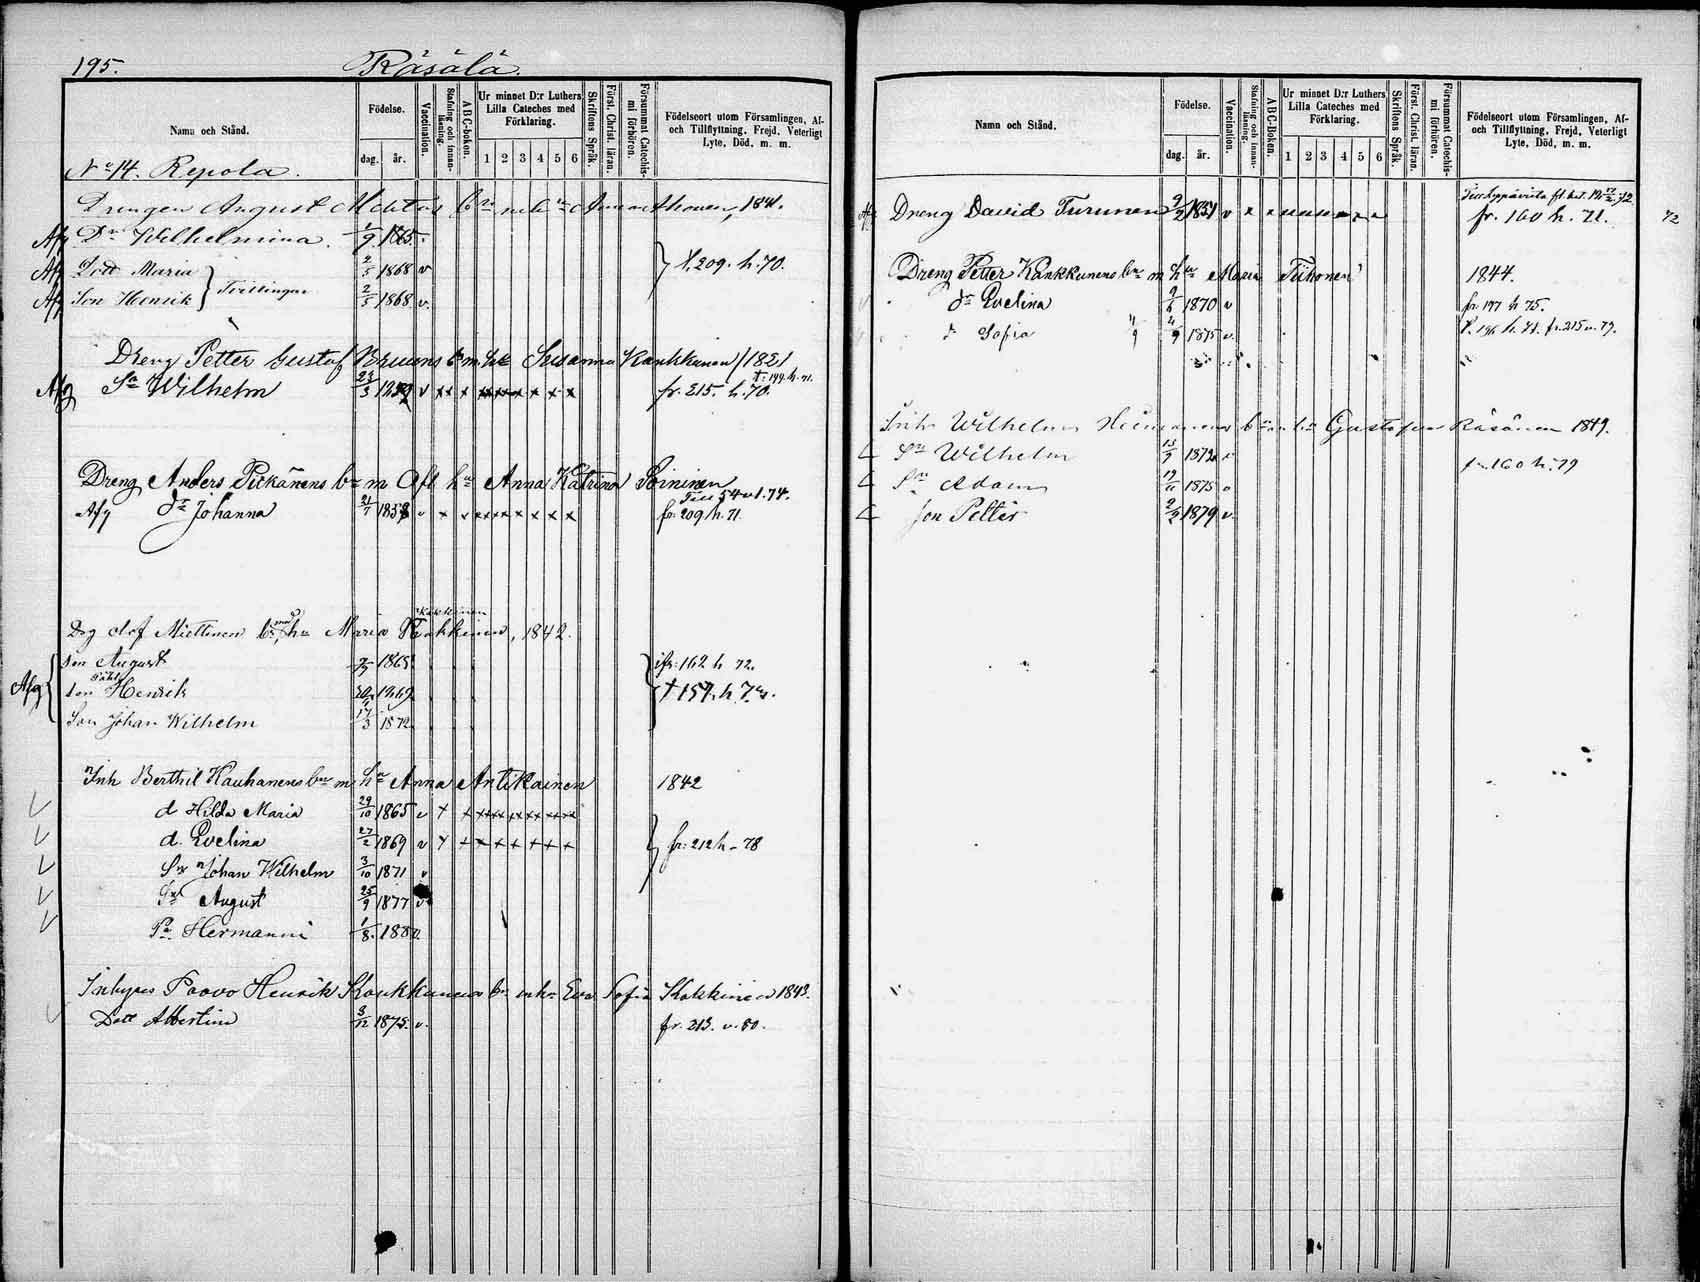 195. Räsälä.
Namn och Stånd.
Födelse.
dag. år.
Vaccination.
Stafning och innanläsning.
ABC-boken.
Ur minnet D:r Luthers Lilla Cateches med Förklaring.
1 2 3 4 5 6
Skriftens Språk.
Först. Christ. läran.
Försummat Catechismi förhören.
Födelseort utom Församlingen, Af- och Tillflyttning, Frejd, Veterligt Lyte, Död, m. m.
No 14. Repola.
Drengen August 1841.
Afg Dr Wilhelmina. 1/9 1865.
Afg Dott Maria 2/5 1868 v
Tvillingar
t. 209. h. 70.
Afg Son Henrik 2/5 1868 v.
Dreng Petter Gustaf brn m Susanna Kaukkunen /1821
t: 199. h. 71.
Afg Sn Wilhelm 23/3 v x x x x x x x x x fr. 215. h. 70.
Dreng Anders Pickänens bn m Afl hu Anna Katrina Soininen
Till 54 v. 74.
Afg dr Johanna 21/7 v x x x x x x x x fr. 209 h. 71.
Kokkinen
Drg Olof Miettinen bn med hu Maria 1842.
Son August 1865 fr: 162 h 72.
Påhl
Afg Son Henrik 1869 t 157. h 7
Son Johan Wilhelm 17/3 1872
Inh Berthil Hauhanens bn m hu Anna Antikainen 1842
d Hilda Maria 29/10 1865 v x x x x x x x x x
d. Evelina 27/2 1869 v x x x x x x x x fr: 212 h - 78
Sn Johan Wilhelm 3/10 1871 v
Sn August 25/9 1877 v
Pa Hermanni 1/8. 188 v.
Inhyses Paavo Henrik Kaukkunens bn m hu Eva Sofia Kokkinen 1843.
Dott Albertina 3/12 1875. v. fr. 213. v. 80.
Namn och Stånd.
Födelse.
dag. år.
Vaccination.
Stafning och innanläsning.
ABC-Boken.
Ur minnet D:r Luthers Lilla Cateches med Förklaring.
1 2 3 4 5 6
Skriftens Språk.
Först. Christ. läran.
Försummat Catechismi förhören.
Födelseort utom Församlingen, Af- och Tillflyttning, Frejd, Veterligt Lyte, Död, m. m.
Afg Dreng David Turunen 9/2 1851 v x x x x x x x x x fr. 160 h. 71. 72
Dreng Petter Kaukkunens bn m hu Maria Tiihonen 1844.
dr Evelina 9/6 1870 v fr. 197 h 75.
d Sofia 4/9 1875 v. t. 196 h. 71. fr. 215 v. 79.
Inh Wilhelm bn m hu Gustafva Räsänen 1849.
Sn Wilhelm 13/9 1872 v fr. 160 h. 79
Sn Adam 19/11 1875 v
Son Petter 2/2 1879 v.